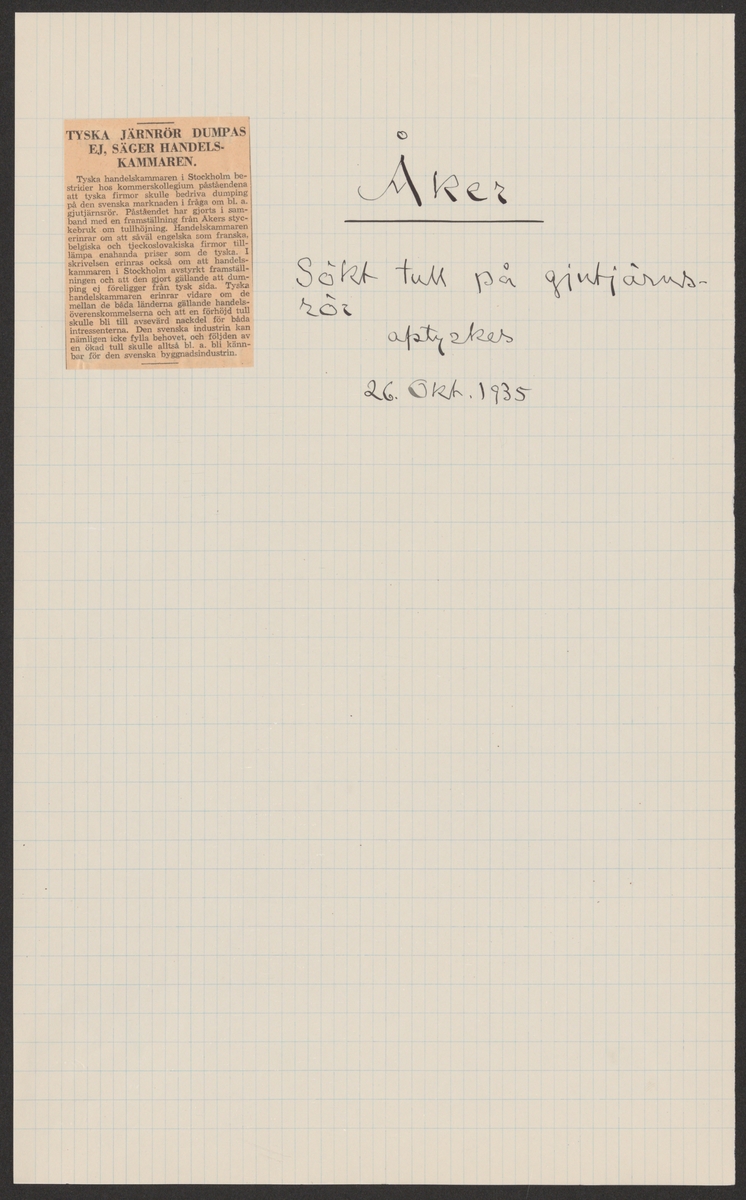 TYSKA JÄRNRÖR DUMPAS
EJ, SÄGER HANDELS-
KAMMAREN.
Tyska handelskammaren i Stockholm be-
strider hos kommerskollegium påståendena
att tyska firmor skulle bedriva dumping
på den svenska marknaden i fråga om bl. a.
gjutjärnsrör. Påståendet har gjorts i sam-
band med en framställning från Åkers styc-
kebruk om tullhöjning. Handelskammaren
erinrar om att såväl engelska som franska,
belgiska och tjeckoslovakiska firmor till-
lämpa enahanda priser som de tyska. I
skrivelsen erinras också om att handels-
kammaren i Stockholm avstyrkt framställ-
ningen och att den gjort gällande att dum-
ping ej föreligger från tysk sida. Tyska
handelskammaren erinrar vidare om de
mellan de båda länderna gällande handels-
överenskommelserna och att en förhöjd tull
skulle bli till avsevärd nackdel för båda
intressenterna. Den svenska industrin kan
nämligen icke fylla behovet, och följden av
en ökad tull skulle alltså bl. a. bli känn-
bar för den svenska byggnadsindustrin.
Åker
Sökt tull på gjutjärns-
rör
26. Okt. 1935